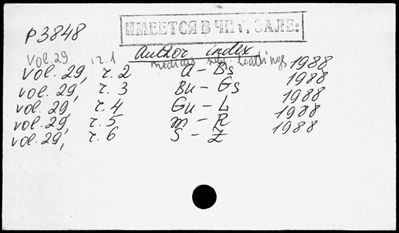 ИМЕЕТСЯ В ЧИТ. ЗАЛЕ:
P3848
Author index
vol. 29 ч.1 1988
vol. 29, ч. 2 A – Bs 1988
vol. 29, ч. 3 Bu – Gs 1988
vol. 29, ч. 4 Gu – L 1988
vol. 29, ч. 5 M – R 1988
vol. 29, ч. 6 S – Z